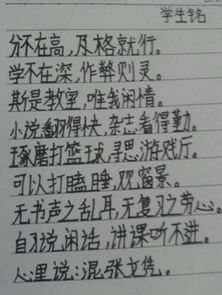 学生铭
分不在高,及格就行。
学不在深,作弊则灵。
斯是教室,唯我闲情。
小说翻得快,杂志看得勤。
琢磨打篮球,寻思游戏厅。
可以打瞌睡,观窗景。
无书声之乱耳,无复习之劳心。
自习说闲话,讲课听不进。
心里说:混张文凭。